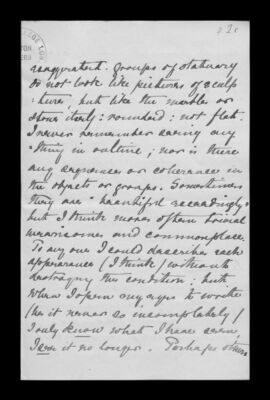 exaggerated. groups of statuary
do not look like pictures of sculp
:tures, but like the marbles or
stone itself: rounded: not flat.
I never remember seeing any
:thing in culture; nor is there
any sequence or coherence in
the objects or groups. Sometimes
they are beautiful exceedingly:
but I think more often trivial
wearisome and commonplace.
To any one I could describe each
appearance (I think) without
destroying the condition; but
when I open my eyes to write
(be it never so incompletely)
I only know what I have seen,
I see it no longer. Perhaps